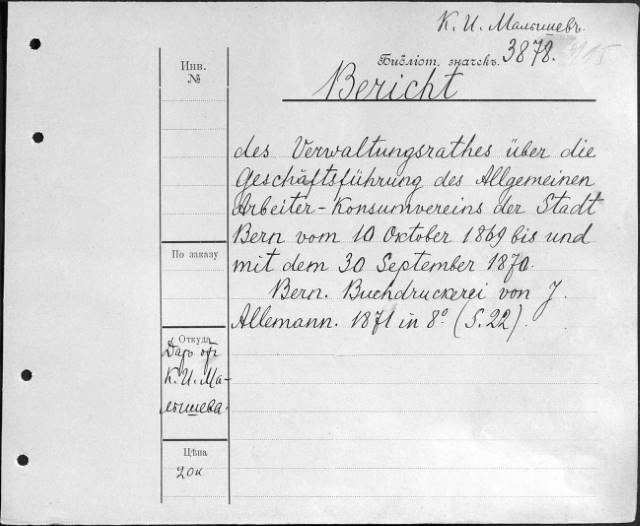 К. И. Малышевъ.
Библіот. значекъ. 3878.
Инв.
№
Bericht
des Verwaltungsrathes über die
Geschäftsführung des Allgemeinen
Arbeiter-Konsumvereins der Stadt
Bern vom 10 Oktober 1869 bis und
mit dem 30 September 1870.
Bern. Buchdruckerei von J.
Allemann. 1871 in 8º (S. 22).
По заказу
Откуда
Даръ от
К. И. Ма-
лышева.
Цѣна
20к